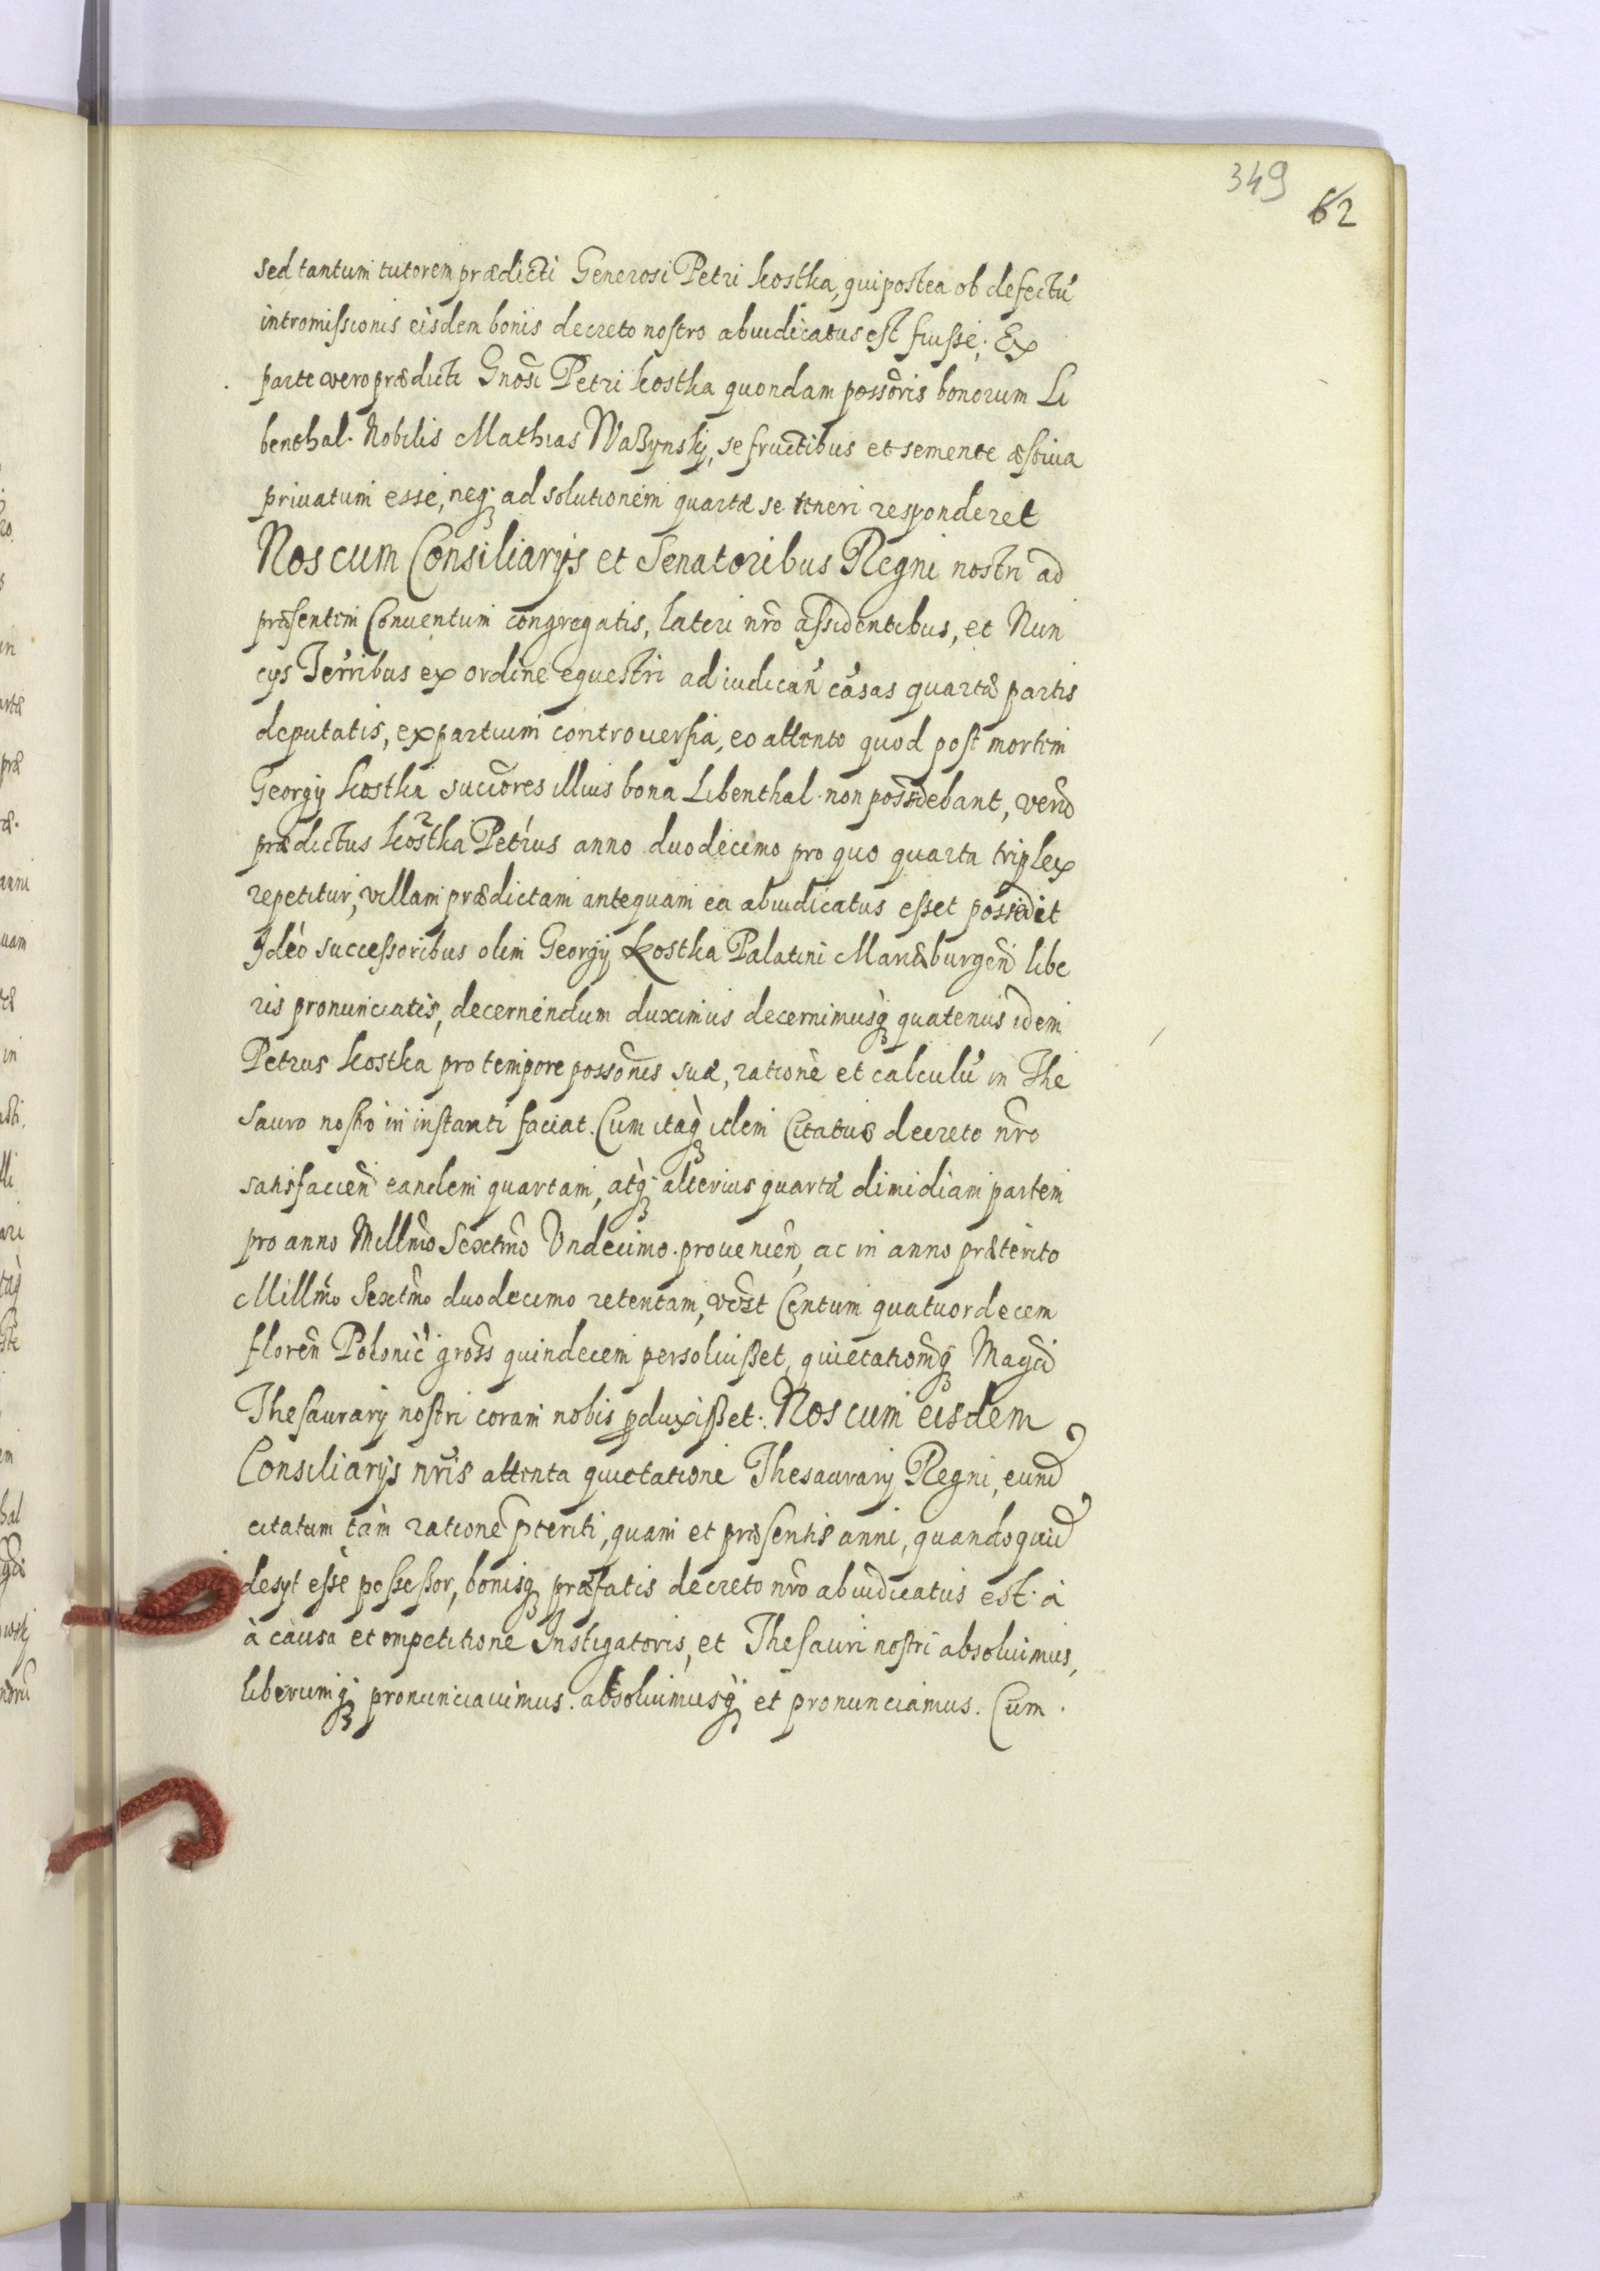 349
62
sed tantum tutorem prædicti Generosi Petri Kostka, qui postea ob defectũ
intromissionis eisdem bonis decreto nostro abiudicatus est fuisse; Ex
parte vero prædicti Gnosi Petri Kostka quondam possoris bonorum Li
benthal. Nobilis Mathias Waßynsky, se fructibus et semente æstiua
priuatum esse, neq; ad solutionem quartæ se teneri responderet
Nos cum Consiliarijs et Senatoribus Regni nostri ad
præsentem Conuentum congregatis, lateri nro assidentibus, et Nun
cys Terribus ex ordine equestri ad iudican̄ cãsas quartæ partis
deputatis, ex partium controuersia, eo attento quod post mortem
Georgij Kostka succores illius bona Libenthal non possidebant, verũ
prædictus Kostka Petrus anno duodecimo pro quo quarta triplex
repetitur, villam prædictam antequam ea abiudicatus esset possedit
Ideò successoribus olim Georgij Kostka Palatini Mariæburgen̄ libe
ris pronunciatis, decernendum duximus decernimusq; quatenus idem
Petrus Kostka pro tempore possonis suæ, rationẽ et calculũ in The
sauro nostro in instanti faciat. Cum itaq; idem Citatus decreto nro
satisfacien̄ eandem quartam, atq; alterius quartæ dimidiam partem
pro anno Millmo Sextmo Vndecimo prouenien̄, ac in anno præterito
Millmo Sextmo duodecimo retentam, vdzt Centum quatuordecem
floren̄ Polonic̄ gross quindecem persoluißet, quietationemq; Magci
Thesaurarij nostri coram nobis pduxißet: Nos cum eisdem
Consiliarijs nris attenta quietatione Thesaurarij Regni, eund
citatum tàm rationẽ pteriti, quam et præsentis anni, quandoquid
desyt esse possessor, bonisq; præfatis decreto nro abiudicatus est. à
à causa et impetitione Instigatoris, et Thesauri nostri absoluimus,
liberumq; pronunciauimus. absoluimusq; et pronunciamus. Cum